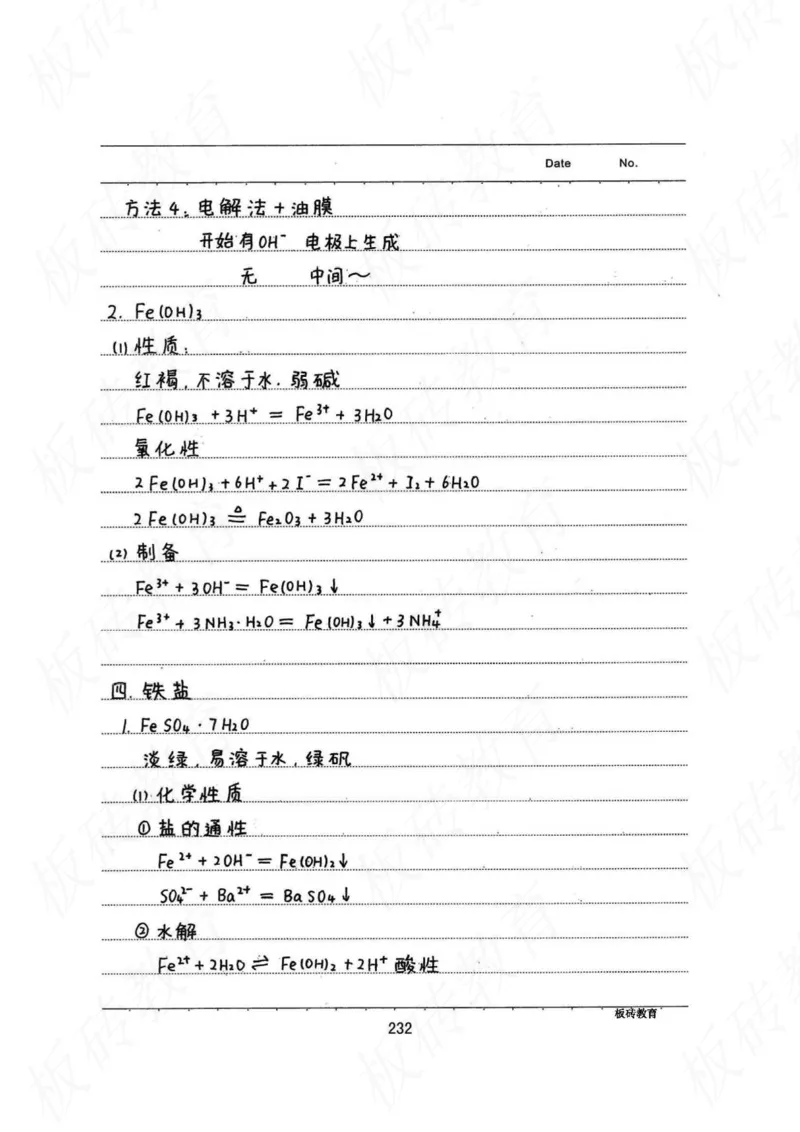 Date No.
方法4: 电解法+油膜
开始有OH⁻ 电极上生成
无 中间~
2. Fe(OH)₃
(1) 性质:
红褐, 不溶于水. 弱碱
Fe(OH)₃ + 3H⁺ = Fe³⁺ + 3H₂O
氧化性
2Fe(OH)₃ + 6H⁺ + 2I⁻ = 2Fe²⁺ + I₂ + 6H₂O
2Fe(OH)₃ ≜ Fe₂O₃ + 3H₂O
(2) 制备
Fe³⁺ + 3OH⁻ = Fe(OH)₃↓
Fe³⁺ + 3NH₃·H₂O = Fe(OH)₃↓ + 3NH₄⁺
四. 铁盐
1. FeSO₄·7H₂O
淡绿, 易溶于水, 绿矾
(1) 化学性质
① 盐的通性
Fe²⁺ + 2OH⁻ = Fe(OH)₂↓
SO₄²⁻ + Ba²⁺ = BaSO₄↓
② 水解
Fe²⁺ + 2H₂O ⇌ Fe(OH)₂ + 2H⁺ 酸性
板砖教育
232